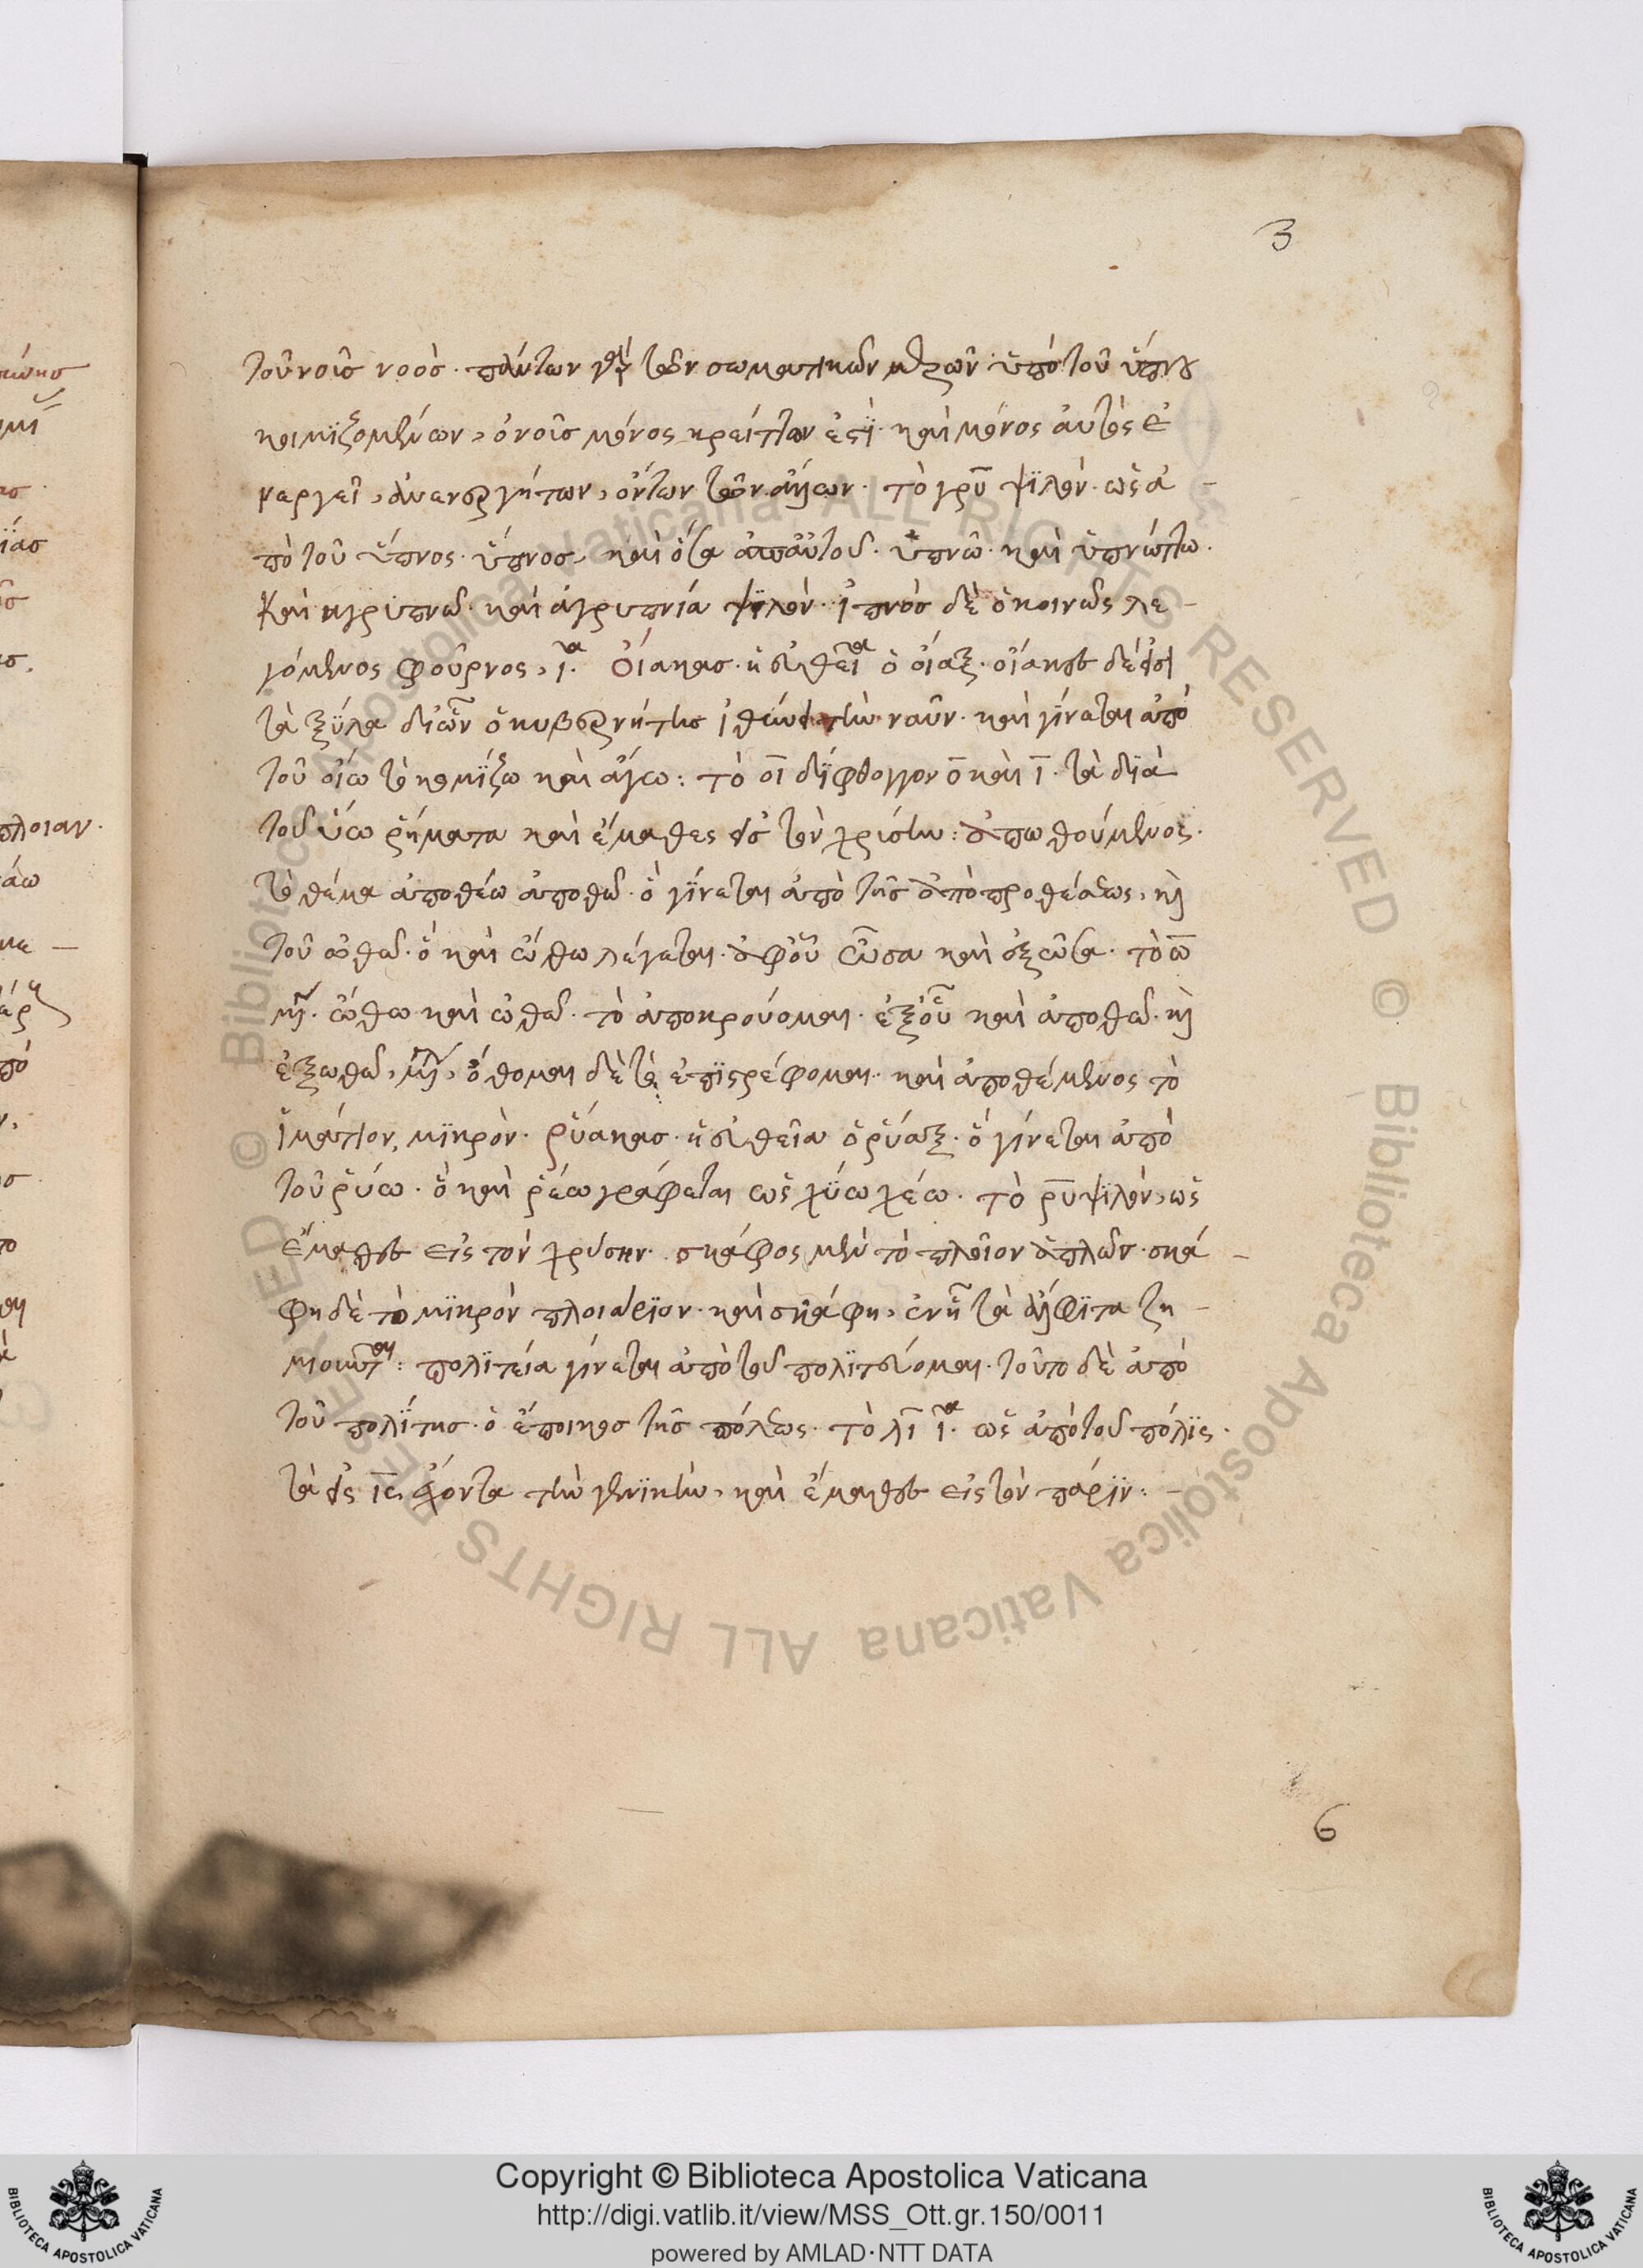 3
τοῦ νοῦς νοός· πάντων γὰρ τῶν σωματικῶν μερῶν ὑπὸ τοῦ ὕπνου
κοιμϊζομένων, ὁ νοῦς μόνος κρείττων ἐστϊ· καὶ μόνος αὐτὸς ἐ
νεργεῖ, ἀνενεργήτων, ὄντων τῶν ἄλλων· τὸ γρυ ψϊλόν· ὡς ἀ-
πὸ τοῦ ὕπνος· ὕπνος, καὶ ὅσα ἀπ αὐτοῦ· ὑπνῶ· καὶ ὑπνώττω·
καὶ ἀγρυπνῶ· καὶ ἀγρυπνία ψϊλόν· ἰπνὸς δὲ ὁ κοινῶς λε-
γόμενος φοῦρνος, ἰῶτα· οἴακας· ἡ εὐθεῖα ὁ οἴαξ· οἴακες δέ εἰσι
τὰ ξύλα δι ὧν ὁ κυβερνήτης ἰθύνει τὴν ναῦν· καὶ γίνεται ἀπὸ
τοῦ οἴω τὸ κομϊζω καὶ ἄγω: τὸ οι δϊφθογγον ο καὶ ι· τὰ δϊὰ
τοῦ ύω ῥήματα καὶ ἔμαθες εἰς τὸν χρύσην: ἀπωθούμενος·
τὸ θέμα ἀποθέω ἀποθῶ· ὃ γίνεται ἀπὸ τῆς ἀπὸ προθέσεως, καὶ
τοῦ ὠθῶ· ὃ καὶ ὤθω λέγεται· ἀφ οὗ ὦσα καὶ ἐξῶσα· τὸ ω
μέγα· ὤθω καὶ ὠθῶ· τὸ ἀποκρούομαι· ἐξ οὗ καὶ ἀποθῶ· καὶ
ἐξωθῶ, μέγα, ὄθομαι δὲ τὸ ἐπϊστρέφομαι· καὶ ἀποθέμενος τὸ
ἱμάτιον, μϊκρόν· ῥύακας· ἡ εὐθεῖα ὁ ῥύαξ· ὃ γίνεται ἀπὸ
τοῦ ῥύω· ὃ καὶ ῥέω γράφεται ὡς χύω χέω· τὸ ρυ ψϊλόν, ὡς
ἔμαθες εἰς τὸν χρύσην· σκάφος μὲν τὸ πλοῖον ἁπλῶς· σκά-
φη δὲ τὸ μϊκρὸν πλοιάρϊον· καὶ σκάφη, ἐν ᾗ τὰ ἄλφϊτα ζη-
μιοῦται: πολϊτεία γίνεται ἀπὸ τοῦ πολϊτεύομαι· τοῦτο δὲ ἀπὸ
τοῦ πολϊτης· ὁ ἔποικος τῆς πόλεως· τὸ λι ἰῶτα· ὡς ἀπὸ τοῦ πόλϊς·
τὰ εἰς ις ἔχοντα τὴν γενϊκὴν, καὶ ἔμαθες εἰς τὸν πάρϊν: -
6
© Biblioteca Apostolica Vaticana ALL RIGHTS RESERVED © Biblioteca Apostolica Vaticana ALL RIGHTS RESERVED
Copyright © Biblioteca Apostolica Vaticana
http://digi.vatlib.it/view/MSS_Ott.gr.150/0011
powered by AMLAD·NTT DATA
BIBLIOTECA APOSTOLICA VATICANA
BIBLIOTECA APOSTOLICA VATICANA